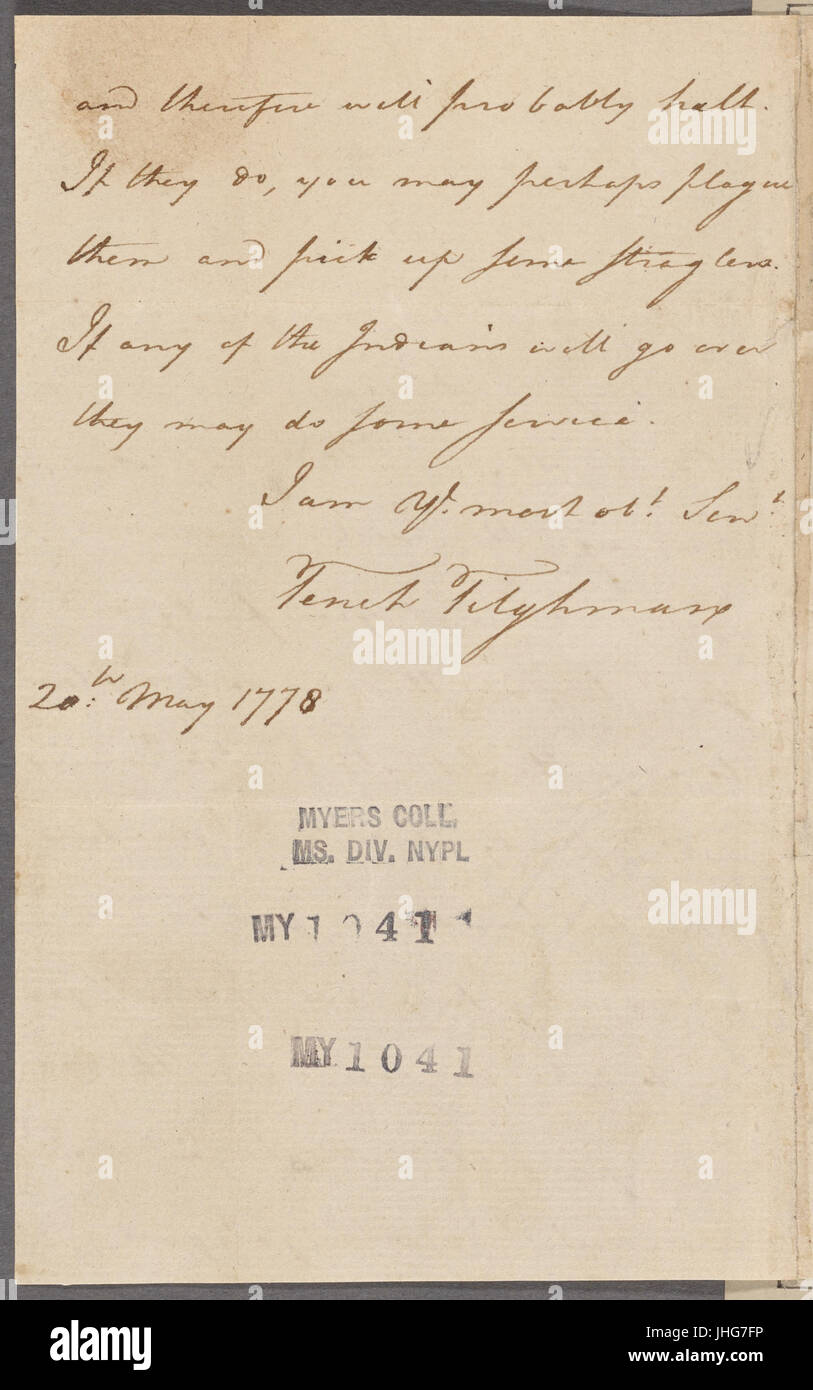 and therefore will probably halt.
If they do, you may perhaps plague
them and pick up some straglers.
If any of the Indians will go over
they may do some service.
I am Yr. most obt. Servt
Tench Tilghman
20th May 1778
MYERS COLL.
MS. DIV. NYPL
MY 1041
MY 1041
alamy
alamy
alamy
alamy
alamy
Image ID: JHG7FP
www.alamy.com